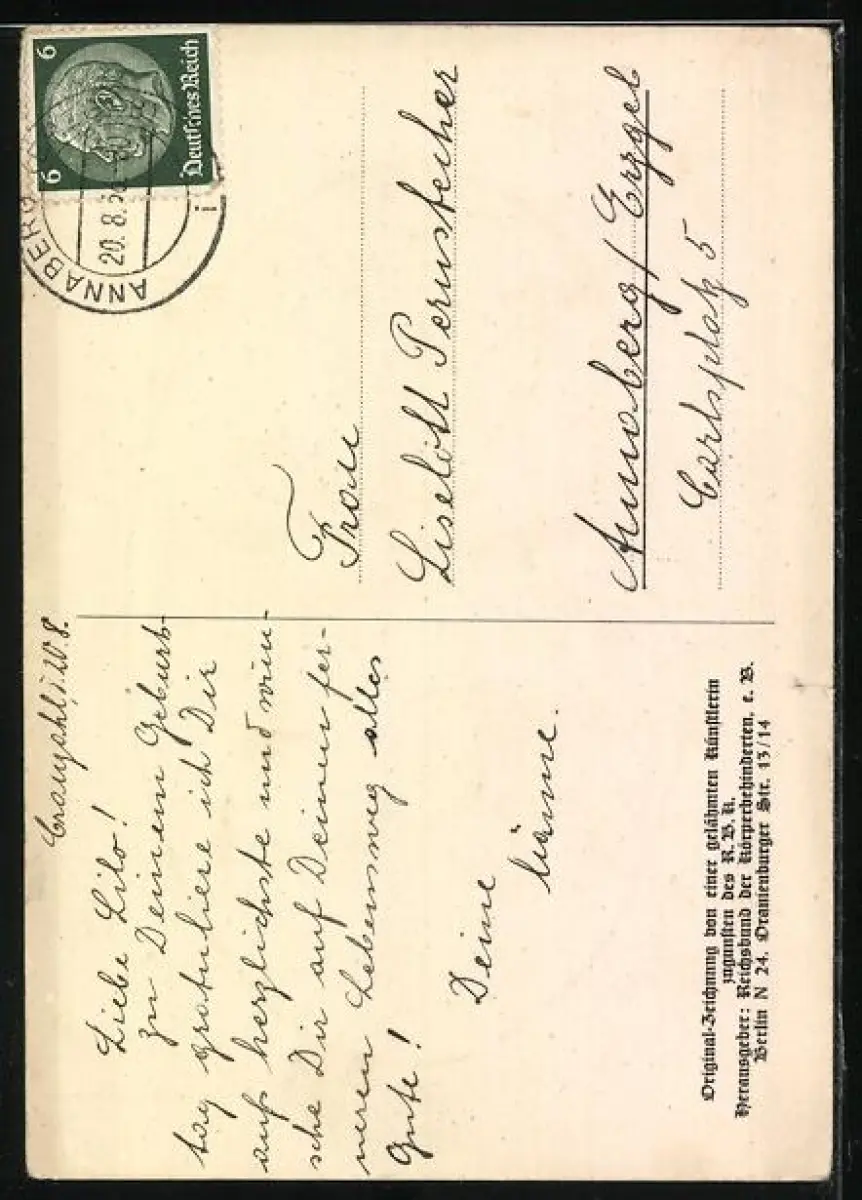 Cranzahl, d. 20.8.
Liebe Lilo!
Zu Deinem Geburts-
tag gratuliere ich Dir
aufs herzlichste und wün-
sche Dir auf Deinem fer-
neren Lebensweg alles
Gute!
Deine
Original-Zeichnung von einer gelähmten Künstlerin
zugunsten des R.B.K.
Herausgeber: Reichsbund der Körperbehinderten, e. V.
Berlin N 24, Oranienburger Str. 13/14
6 6
Deutsches Reich
ANNABERG
20.8.
Frau
Liselott Pernstecher
Annaberg/Erzgeb
Carlsplatz 5